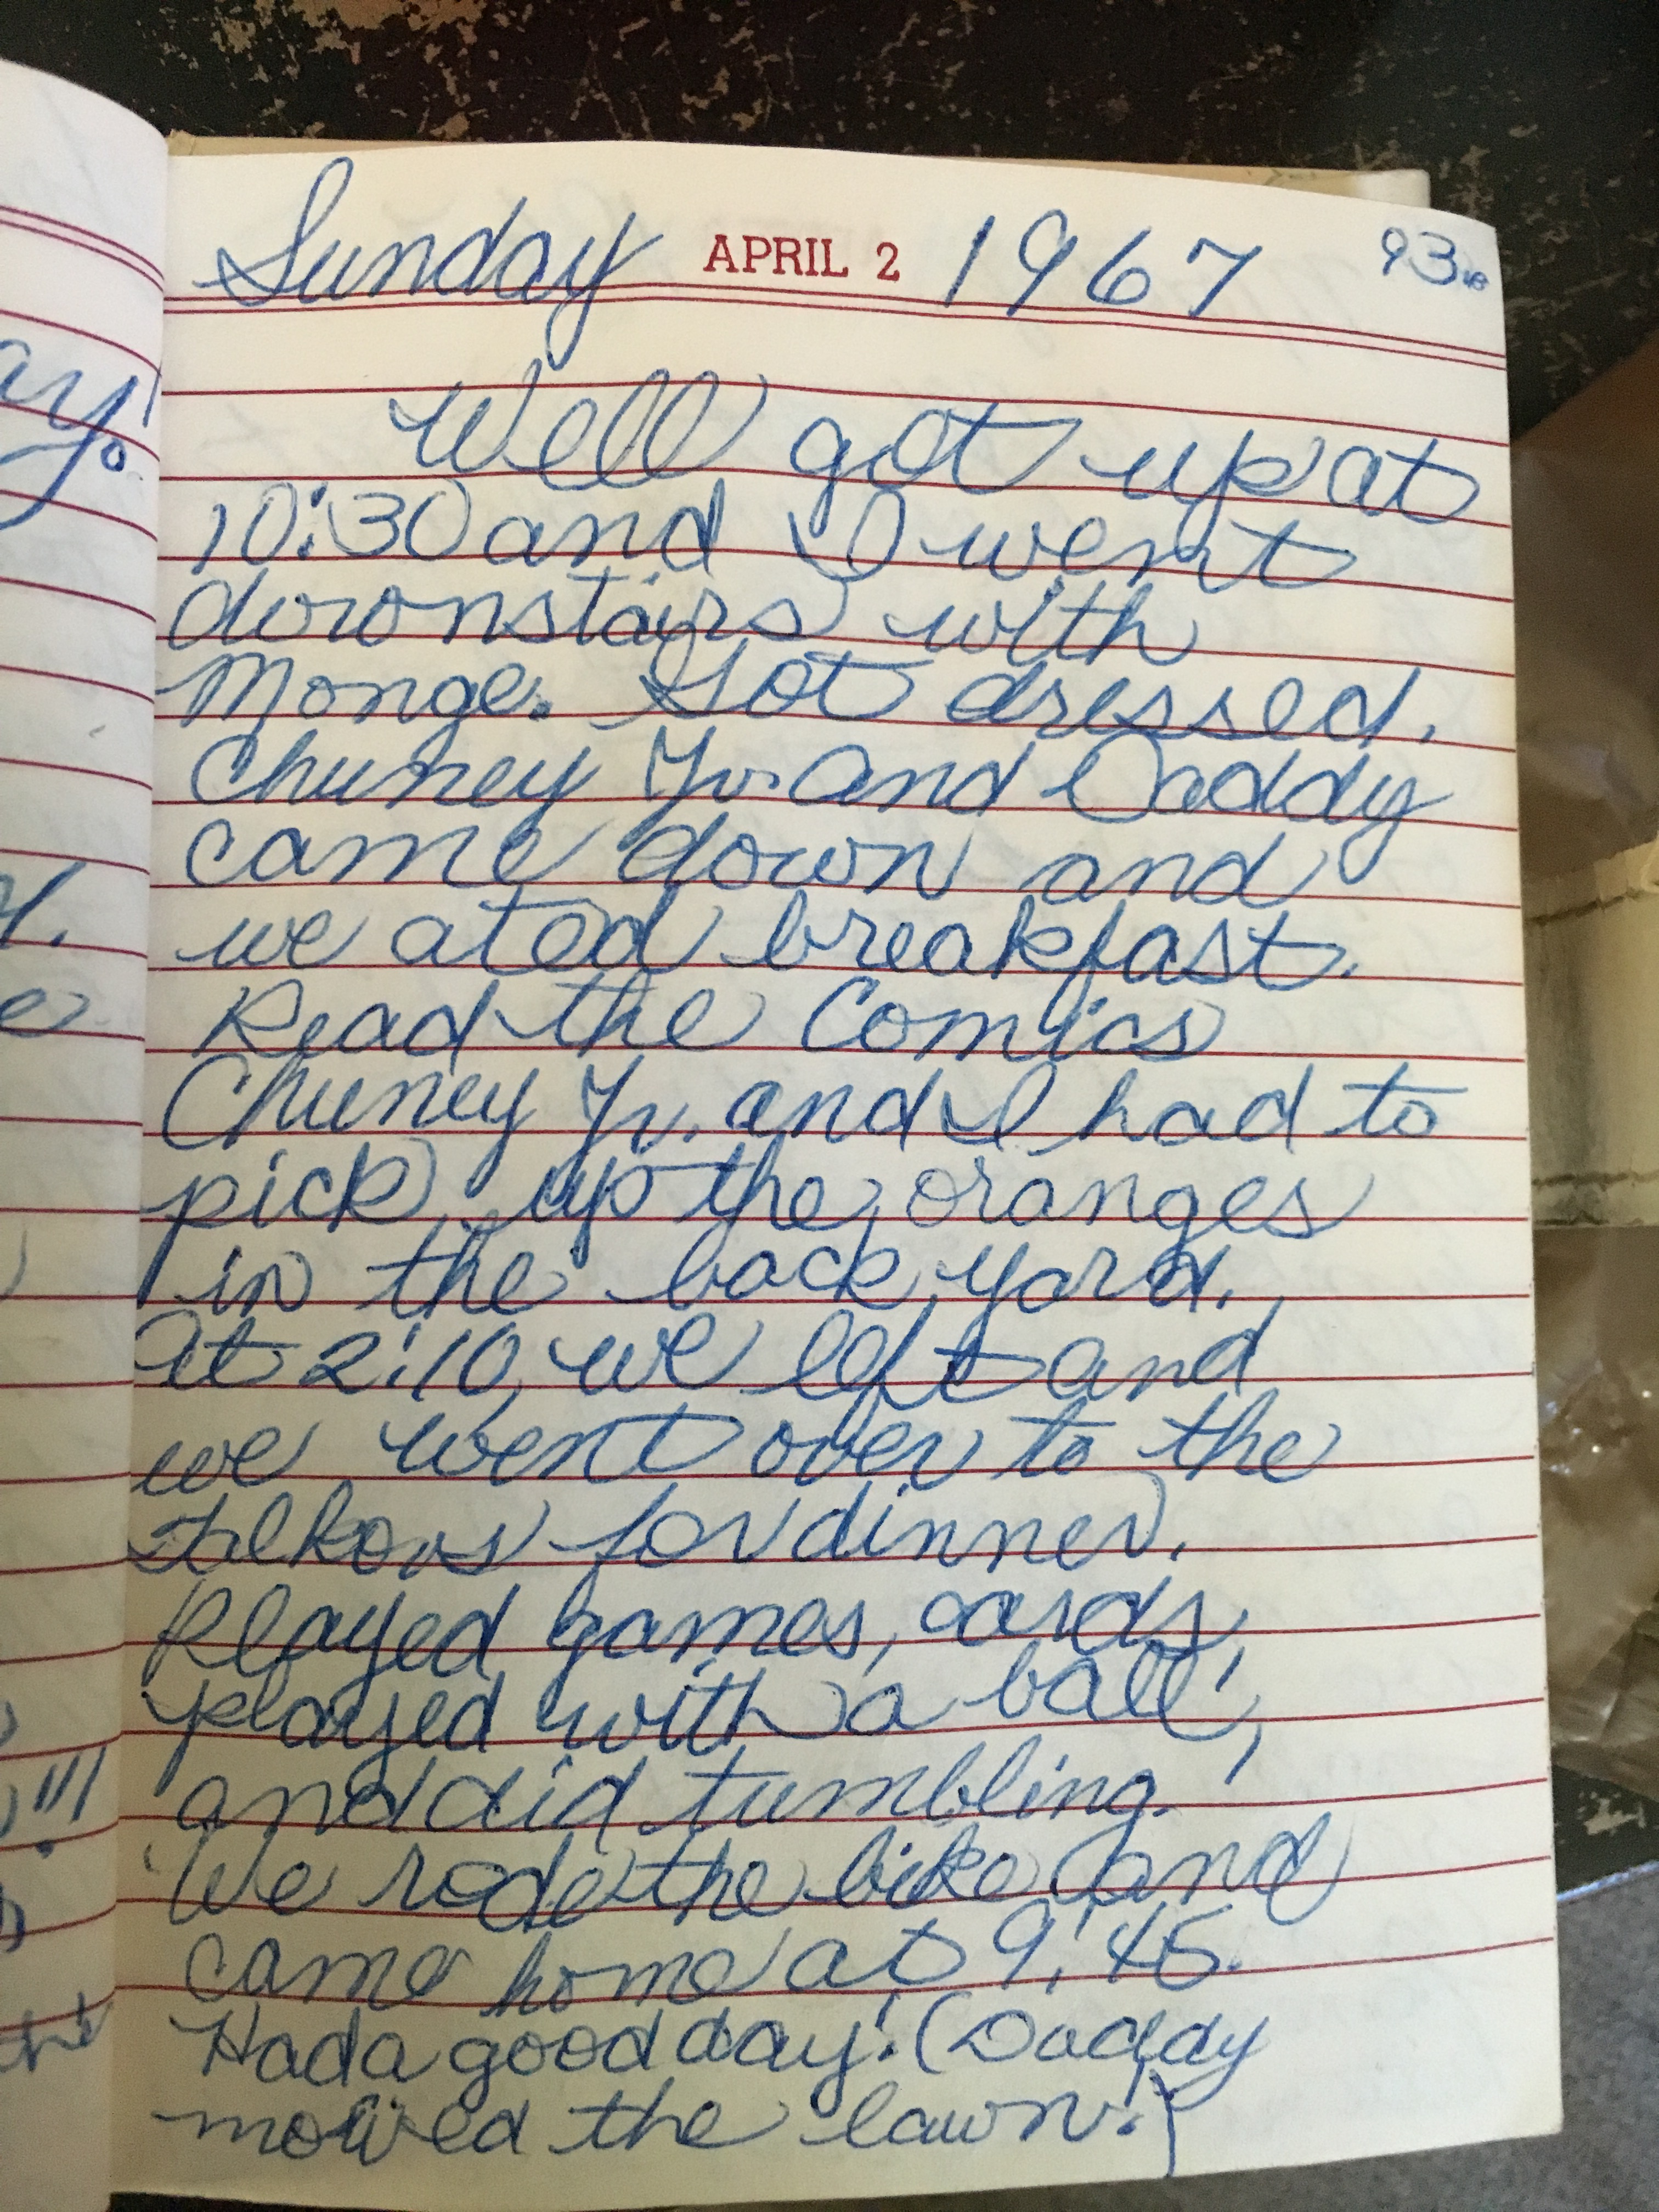 Sunday APRIL 2 1967 93.
Well got up at
10:30 and I went
downstairs with
Monge. Got dressed.
Chuney Jr. and Daddy
came down and
we ated breakfast.
Read the Comics
Chuney Jr. and I had to
pick up the oranges
in the back yard.
At 2:10 we left and
we went over to the
for dinner.
Played games, cards,
played with a ball,
and did tumbling.
We rode the bike and
came home at 9:45.
Had a good day! (Daddy
mowed the lawn.)
ay!